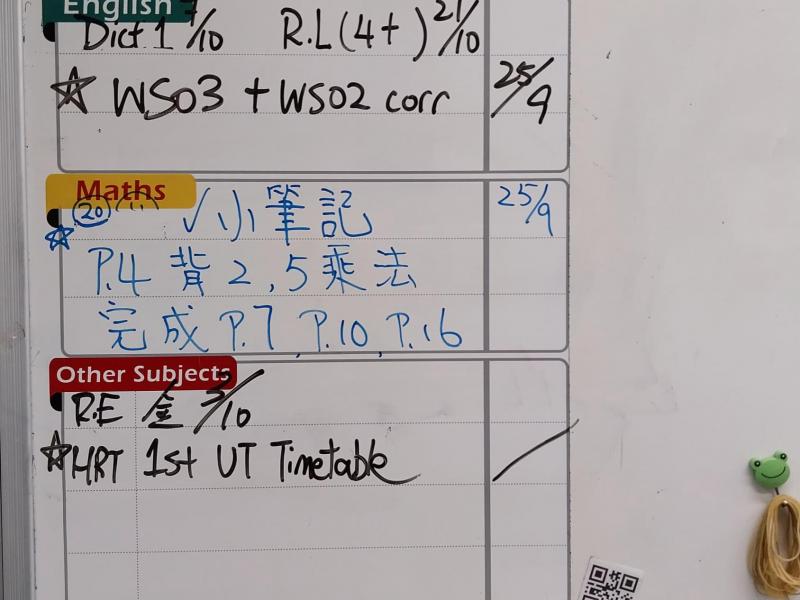 English
Dict 1 7/10 R.L (4+) 21/10
☆ WS03 + WS02 corr 25/9
Maths
20 √小筆記 25/9
☆ P.4 背 2,5 乘法
完成 P.7, P.10, P.16
Other Subjects
R.E 金 3/10
☆ HRT 1st UT Timetable